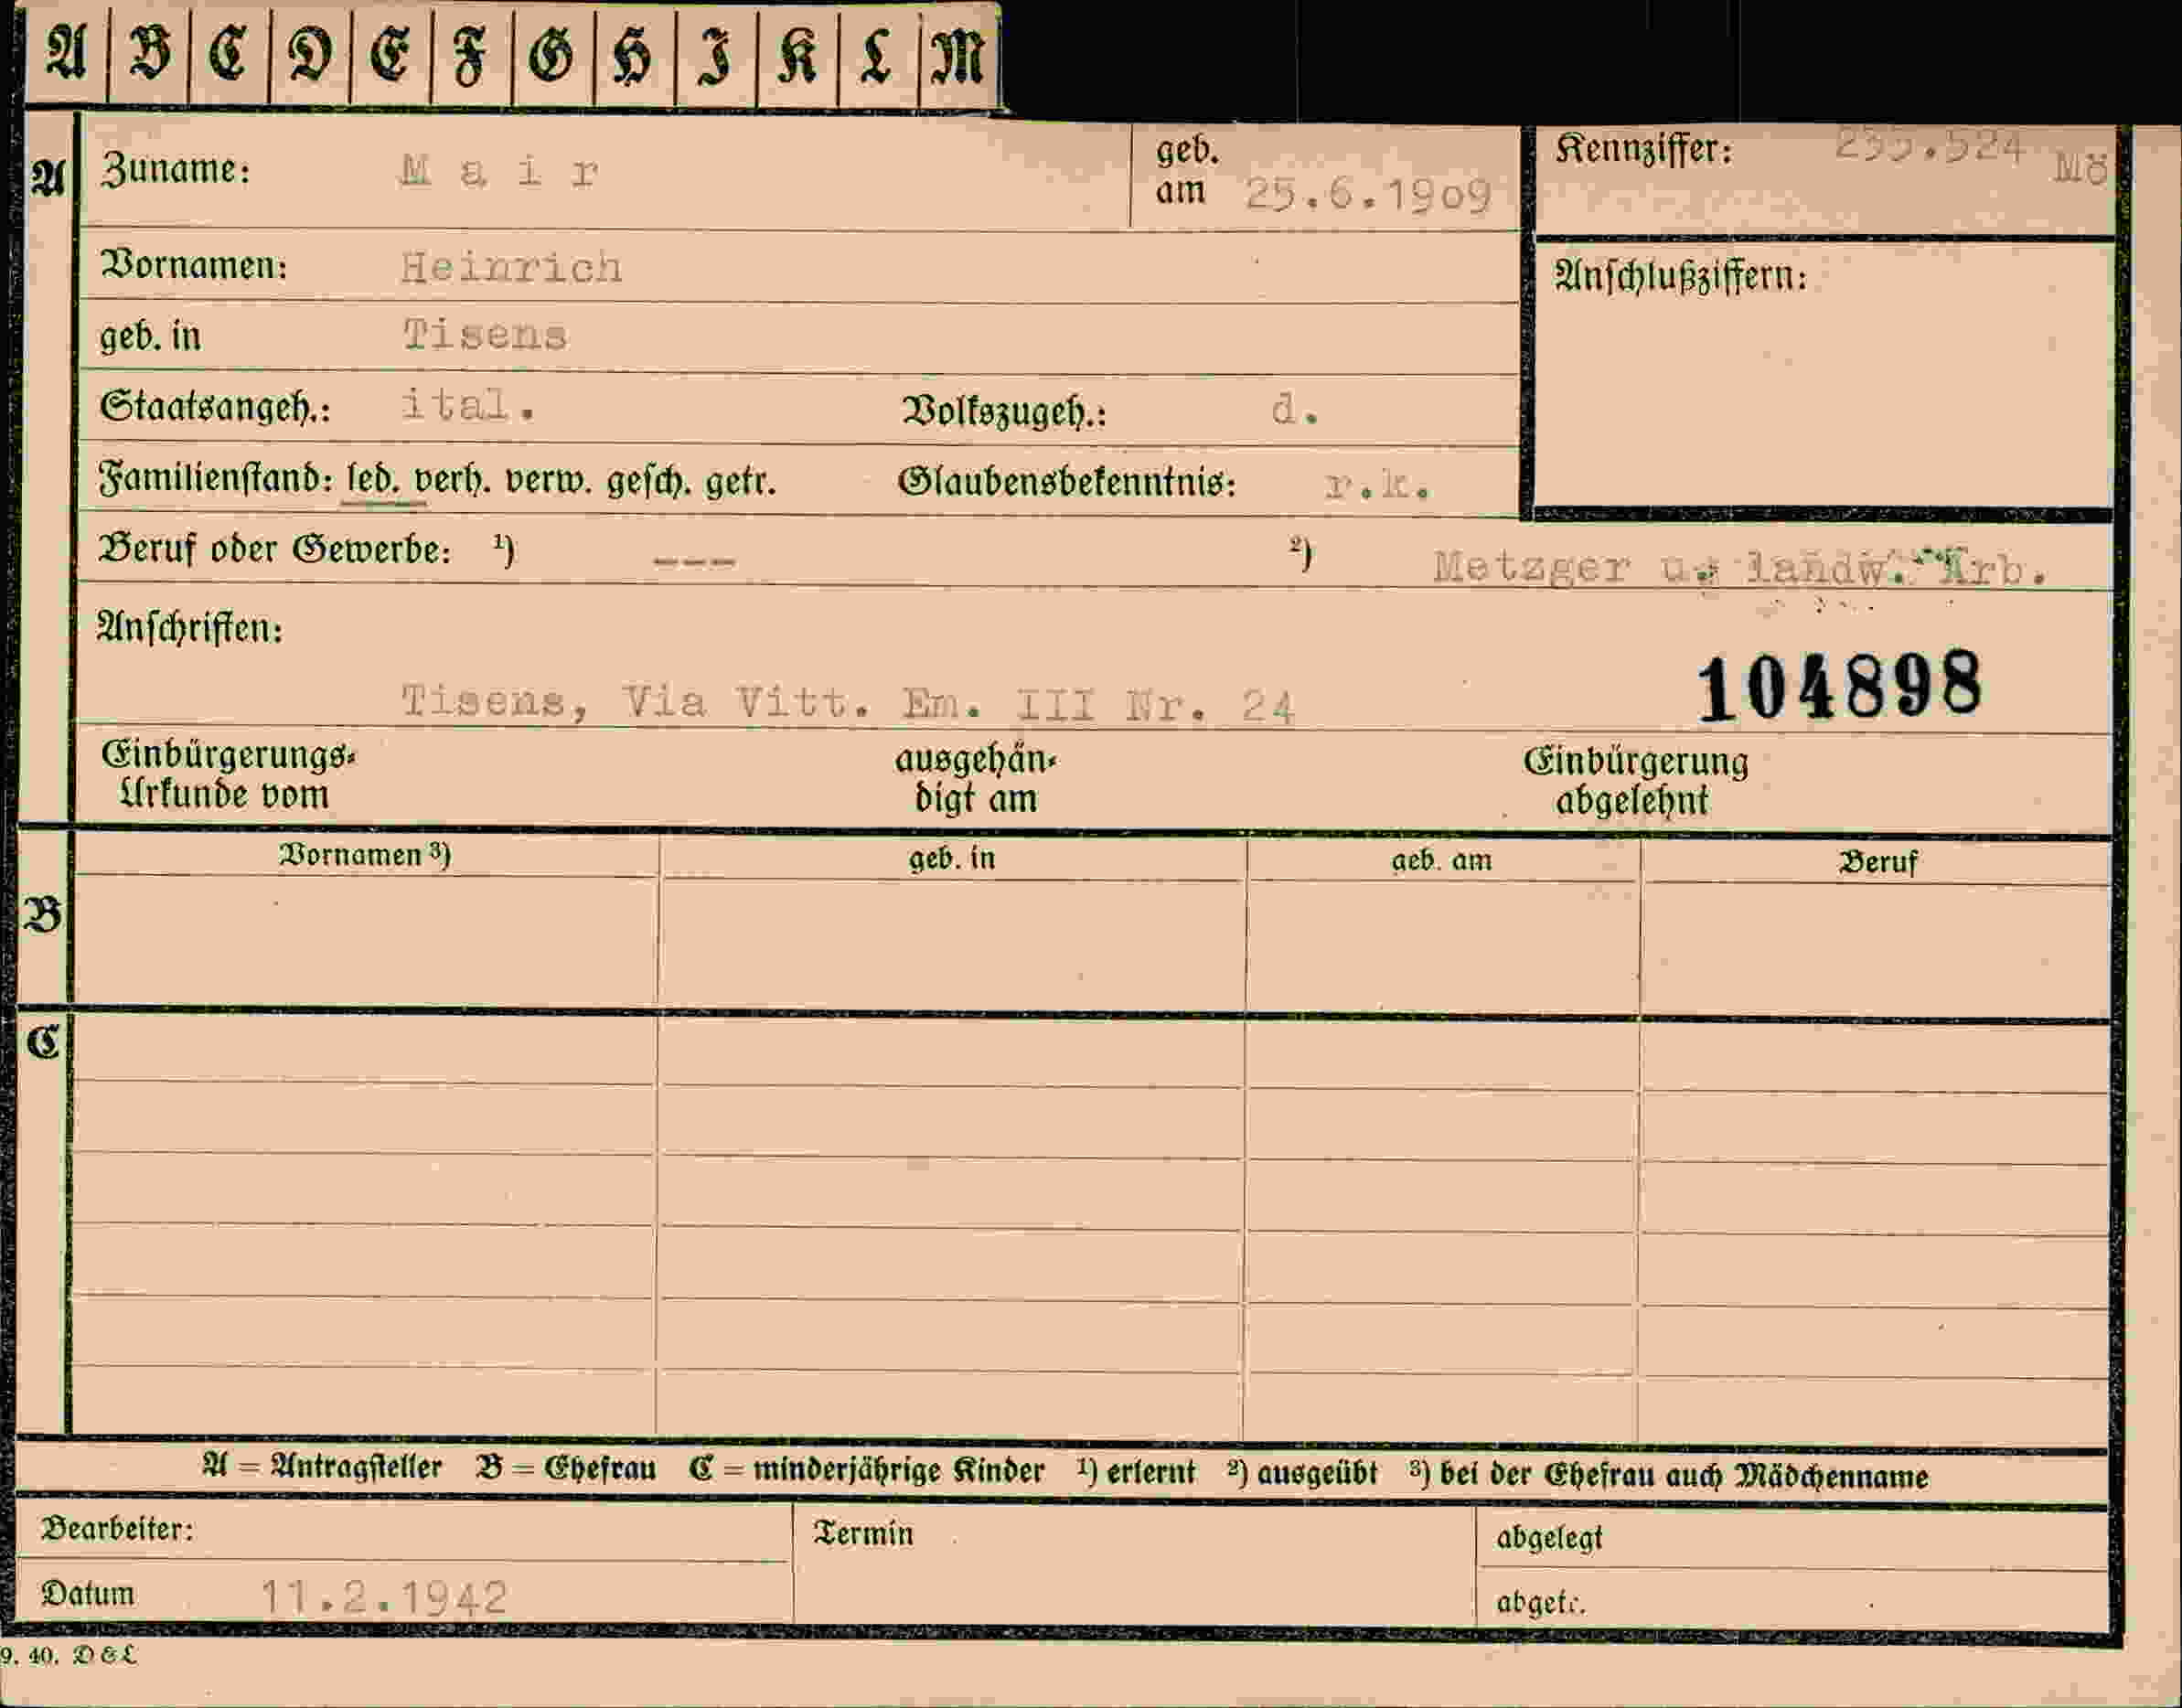 A B C D E F G H I K L M
A Zuname: M a i r geb. am 25.6.19o9 Kennziffer: 235.524 Mö
Vornamen: Heinrich Anschlußziffern:
geb. in Tisens
Staatsangeh.: ital. Volkszugeh.: d.
Familienstand: led. verh. verw. gesch. getr. Glaubensbekenntnis: r.k.
Beruf oder Gewerbe: ¹) --- ²) Metzger u. landw. Arb.
Anschriften:
104898
Tisens, Via Vitt. Em. III Nr. 24
Einbürgerungs- ausgehän- Einbürgerung
Urkunde vom digt am abgelehnt
Vornamen ³) geb. in geb. am Beruf
B
C
A = Antragsteller B = Ehefrau C = minderjährige Kinder ¹) erlernt ²) ausgeübt ³) bei der Ehefrau auch Mädchenname
Bearbeiter: Termin abgelegt
Datum 11.2.1942 abgetr.
9. 40. D & L